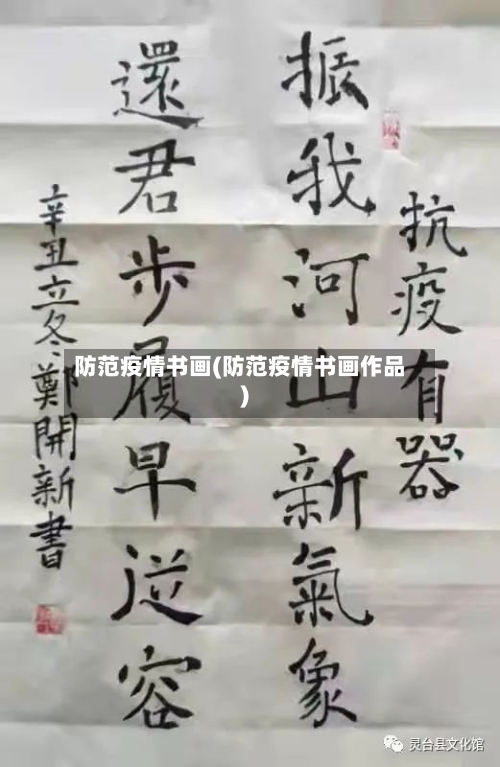 抗疫有器
振我河山新氣象
還君步履早從容
辛丑立冬鄭開新書
防范疫情书画(防范疫情书画作品
)
灵台县文化馆